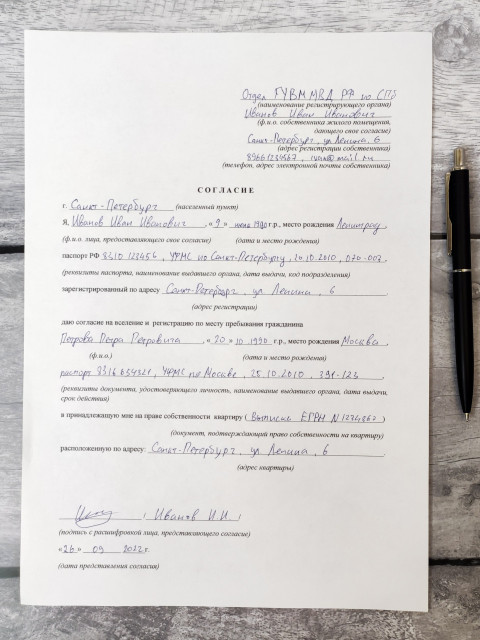 Отдел ГУВМ МВД РФ по СПб
(наименование регистрирующего органа)
Иванов Иван Иванович
(ф.и.о. собственника жилого помещения,
дающего свое согласие)
Санкт-Петербург, ул Ленина, 6
(адрес регистрации собственника)
89661234567,
(телефон, адрес электронной почты собственника)
СОГЛАСИЕ
г. Санкт-Петербург (населенный пункт)
Я, Иванов Иван Иванович, «9» июля 1990 г.р., место рождения Ленинград,
(ф.и.о. лица, предоставляющего свое согласие) (дата и место рождения)
паспорт РФ 8410 123456, УФМС по Санкт-Петербургу, 20.10.2010, 020-007,
(реквизиты паспорта, наименование выдавшего органа, дата выдачи, код подразделения)
зарегистрированный по адресу Санкт-Петербург, ул Ленина, 6
(адрес регистрации)
даю согласие на вселение и регистрацию по месту пребывания гражданина
Петрова Петра Петровича, «20» 10 1990 г.р., место рождения Москва,
(ф.и.о.) (дата и место рождения)
паспорт 8316 034321, УФМС по Москве, 25.10.2010, 391-123
(реквизиты документа, удостоверяющего личность, наименование выдавшего органа, дата выдачи,
срок действия)
в принадлежащую мне на праве собственности квартиру (Выписка ЕГРН N 1234867)
(документ, подтверждающий право собственности на квартиру)
расположенную по адресу: Санкт-Петербург, ул Ленина, 6
(адрес квартиры)
/ Иванов И.И. /
(подпись с расшифровкой лица, представляющего согласие)
«26» 09 2022 г.
(дата представления согласия)